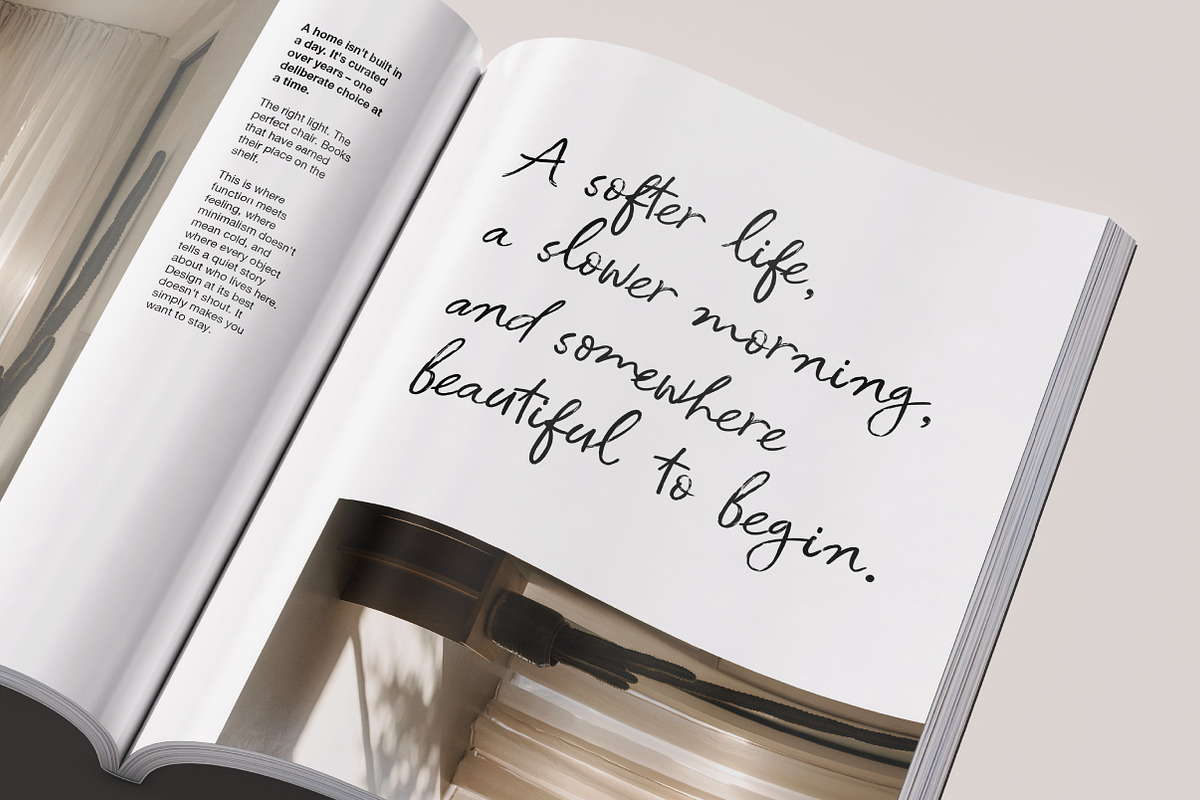 A home isn't built in
a day. It's curated
over years – one
deliberate choice at
a time.
The right light. The
perfect chair. Books
that have earned
their place on the
shelf.
This is where
function meets
feeling, where
minimalism doesn't
mean cold, and
where every object
tells a quiet story
about who lives here.
Design at its best
doesn't shout. It
simply makes you
want to stay.
A softer life,
a slower morning,
and somewhere
beautiful to begin.